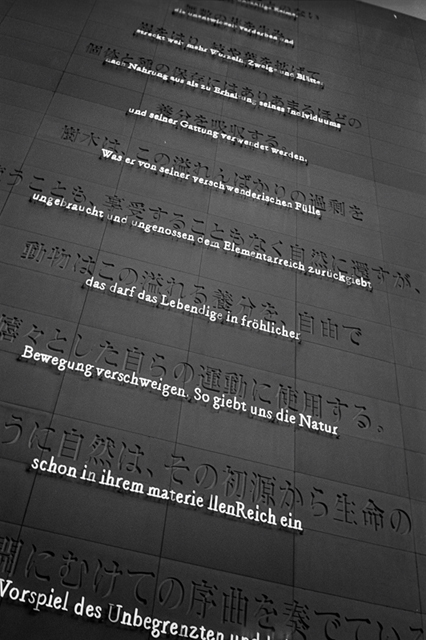 die unentwickelt verderben und
streckt weit mehr Wurzeln, Zweige und Blätter
個体と種の保存にはあり余るほどの
nach Nahrung aus als zu Erhaltung seines Individuums
養分を吸収する。
und seiner Gattung verwendet werden.
樹木は、この溢れんばかりの過剰を
Was er von seiner verschwenderischen Fülle
うことも、享受することもなく自然に還すが、
ungebraucht und ungenossen dem Elementarreich zurückgiebt
動物はこの溢れる養分を、自由で
das darf das Lebendige in fröhlicher
嬉々とした自らの運動に使用する。
Bewegung verschweigen. So giebt uns die Natur
うに自然は、その初源から生命の
schon in ihrem materie llenReich ein
開にむけての序曲を奏でている
Vorspiel des Unbegrenzten und